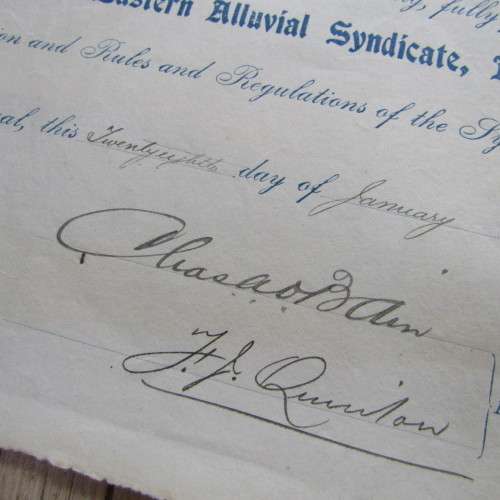 ng, fully
Eastern Alluvial Syndicate,
ion and Rules and Regulations of the Sy
al, this Twentyeighth day of January
Chas A O Bain
F. J. Quinton